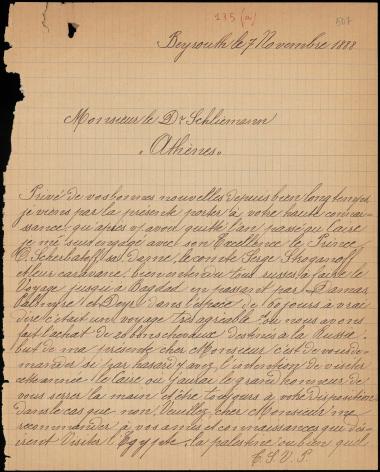 175 (a)
507
Beyrouth le 7 Novembre 1888
Monsieur le Dr Schliemann
"Athènes"
Privé de vos bonnes nouvelles depuis bien longtemps
je viens par la présente porter à votre haute connais-
sance, qu'après v/avoir quitté l'an passé au Caire
je me suis engagé avec son Excellence le Prince
C. Scherbatoff sa Dame, le comte Serge Stroganoff
et leur caravane, bien entendu tous russes, à faire le
voyage jusqu'à Bagdad en passant par Damas,
Palmyre et Deyr dans l'espace de 60 jours à vrai
dire c'était un voyage très agréable où nous avons
fait l'achat de 20 bons chevaux destinés à la Russie.
but de ma présente cher Monsieur c'est de vous de-
mander si par hasard v/avez l'intention de visiter
cette année le Caire où j'aurai le grand honneur de
vous serrer la main et être toujours à votre disposition
dans le cas que non, Veuillez cher Monsieur me
recommander à vos amis et connaissances qui dési-
rent visiter l'Egypte, la palestine ou bien quel
T.S.V.P.